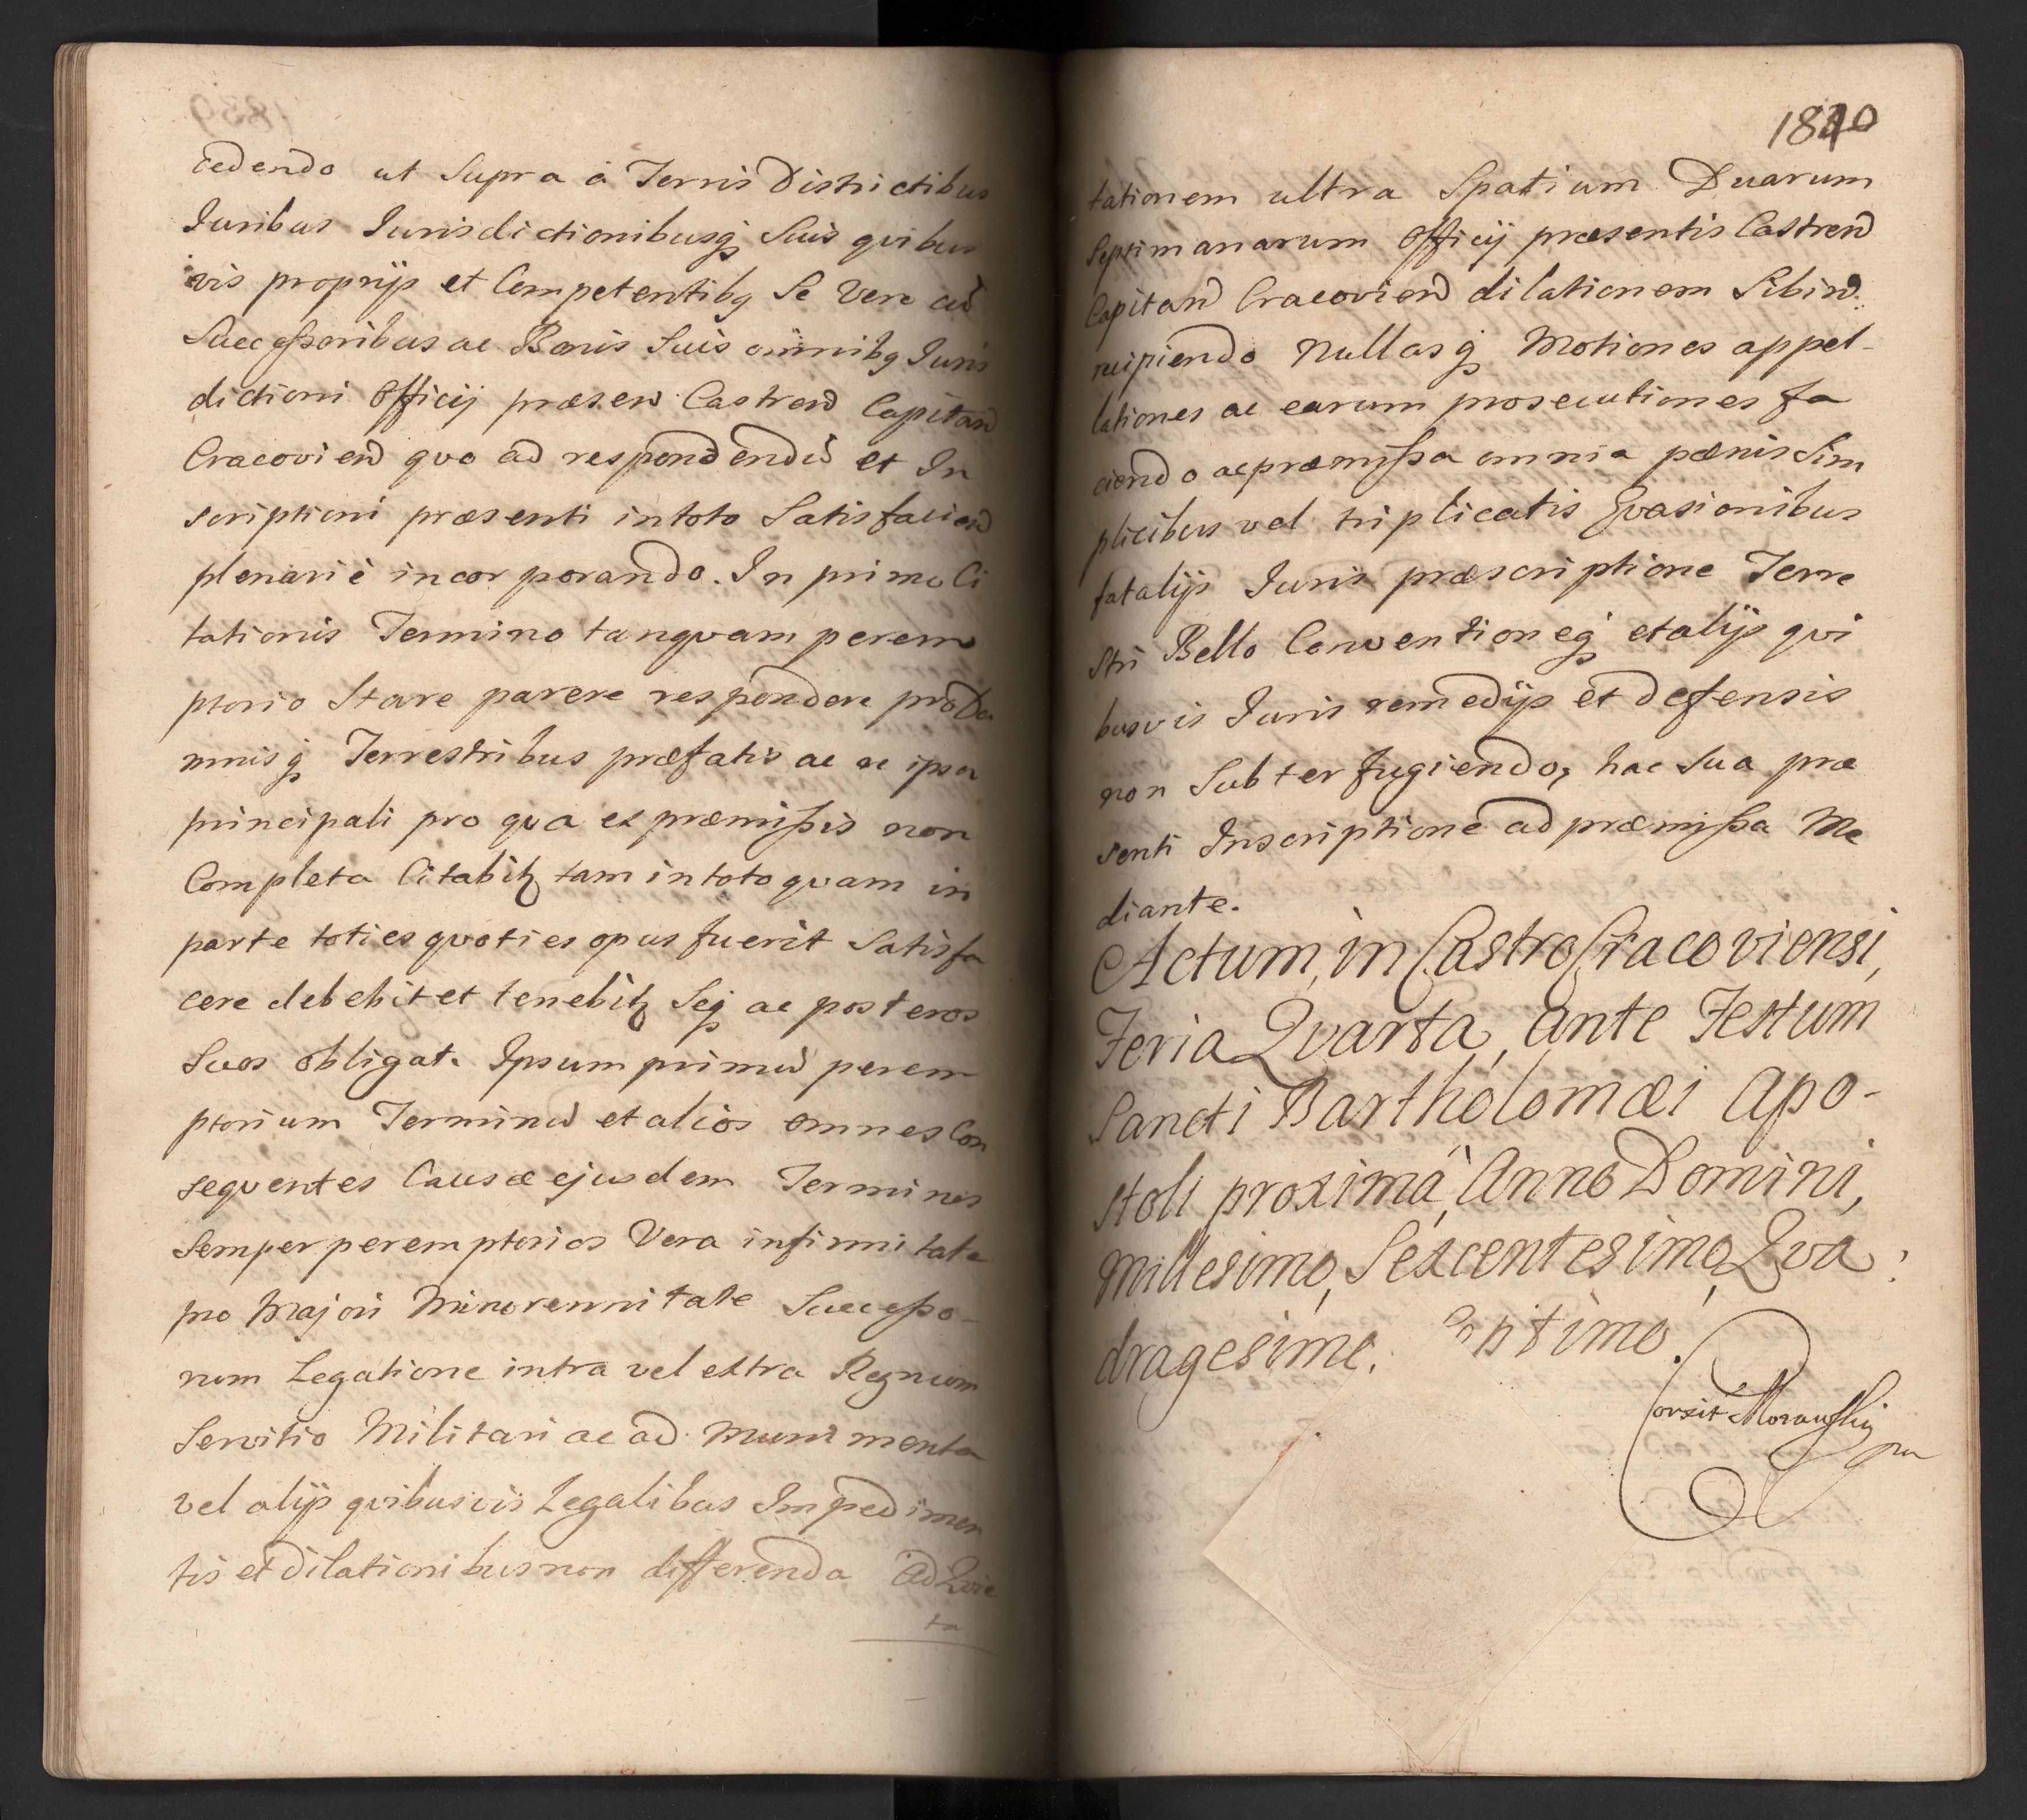 cedendo ut Supra á Terris Districtibus
Iuribus Iurisdictionibusq Suis qvibus
vis proprijs et Competentibq Se Vero ac
Successoribus ac Bonis Suis omnibq Iuris
dictioni Officij præsen Castren Capitan
Cracovien qvo ad respondendū et In
scriptioni præsenti in toto Satisfacien
plenarié incorporando. In primo Ci
tationis Termino tanqvam perem
ptorio Stare parere respondere pro Da
mnisq Terrestribus præfatis ac re ipsa
principali pro qva ex præmissis non
Completa Citabitq tam in toto qvam in
parte toties qvoties opus fuerit Satisfa
cere debebit et tenebitq Seq ac posteros
Suos obligat. Ipsum primū perem
ptorium Terminū et alios omnes Con
seqventes Causæ ejusdem Terminos
Semper peremptorios Vera infirmitate
pro Majori Minorennitate Successo-
rum Legatione intra vel extra Regnum
Servitio Militari ac ad Munimenta
vel alijs qvibusvis Legalibus Impedimen
tis et dilationibus non differenda Ad Qvie
ta
1840
tationem ultra Spatium Duarum
Septimanarum Officij præsentis Castren
Capitan Cracovien dilationem Sibi
recipiendo Nullasq Motiones appel-
lationes ac earum prosecutiones fa
ciendo ac præmissa omnia pænis Sim
plicibus vel triplicatis Evasionibus
fatalijs Iuris præscriptione Terre
stri Bello Conventioneq et alijs qvi
busvis Iuris remedijs et defensis
non Subterfugiendo, hac Sua præ
senti Inscriptione ad præmissa Me
diante.
Actum, in Castro Cracoviensi,
Feria Qvarta, ante Festum
Sancti Bartholomæi Apo-
stoli proximá, Anno Domini,
Millesimo, Sexcentesimo, Qva:
dragesimo. Septimo.
Corxit Morawski
mp